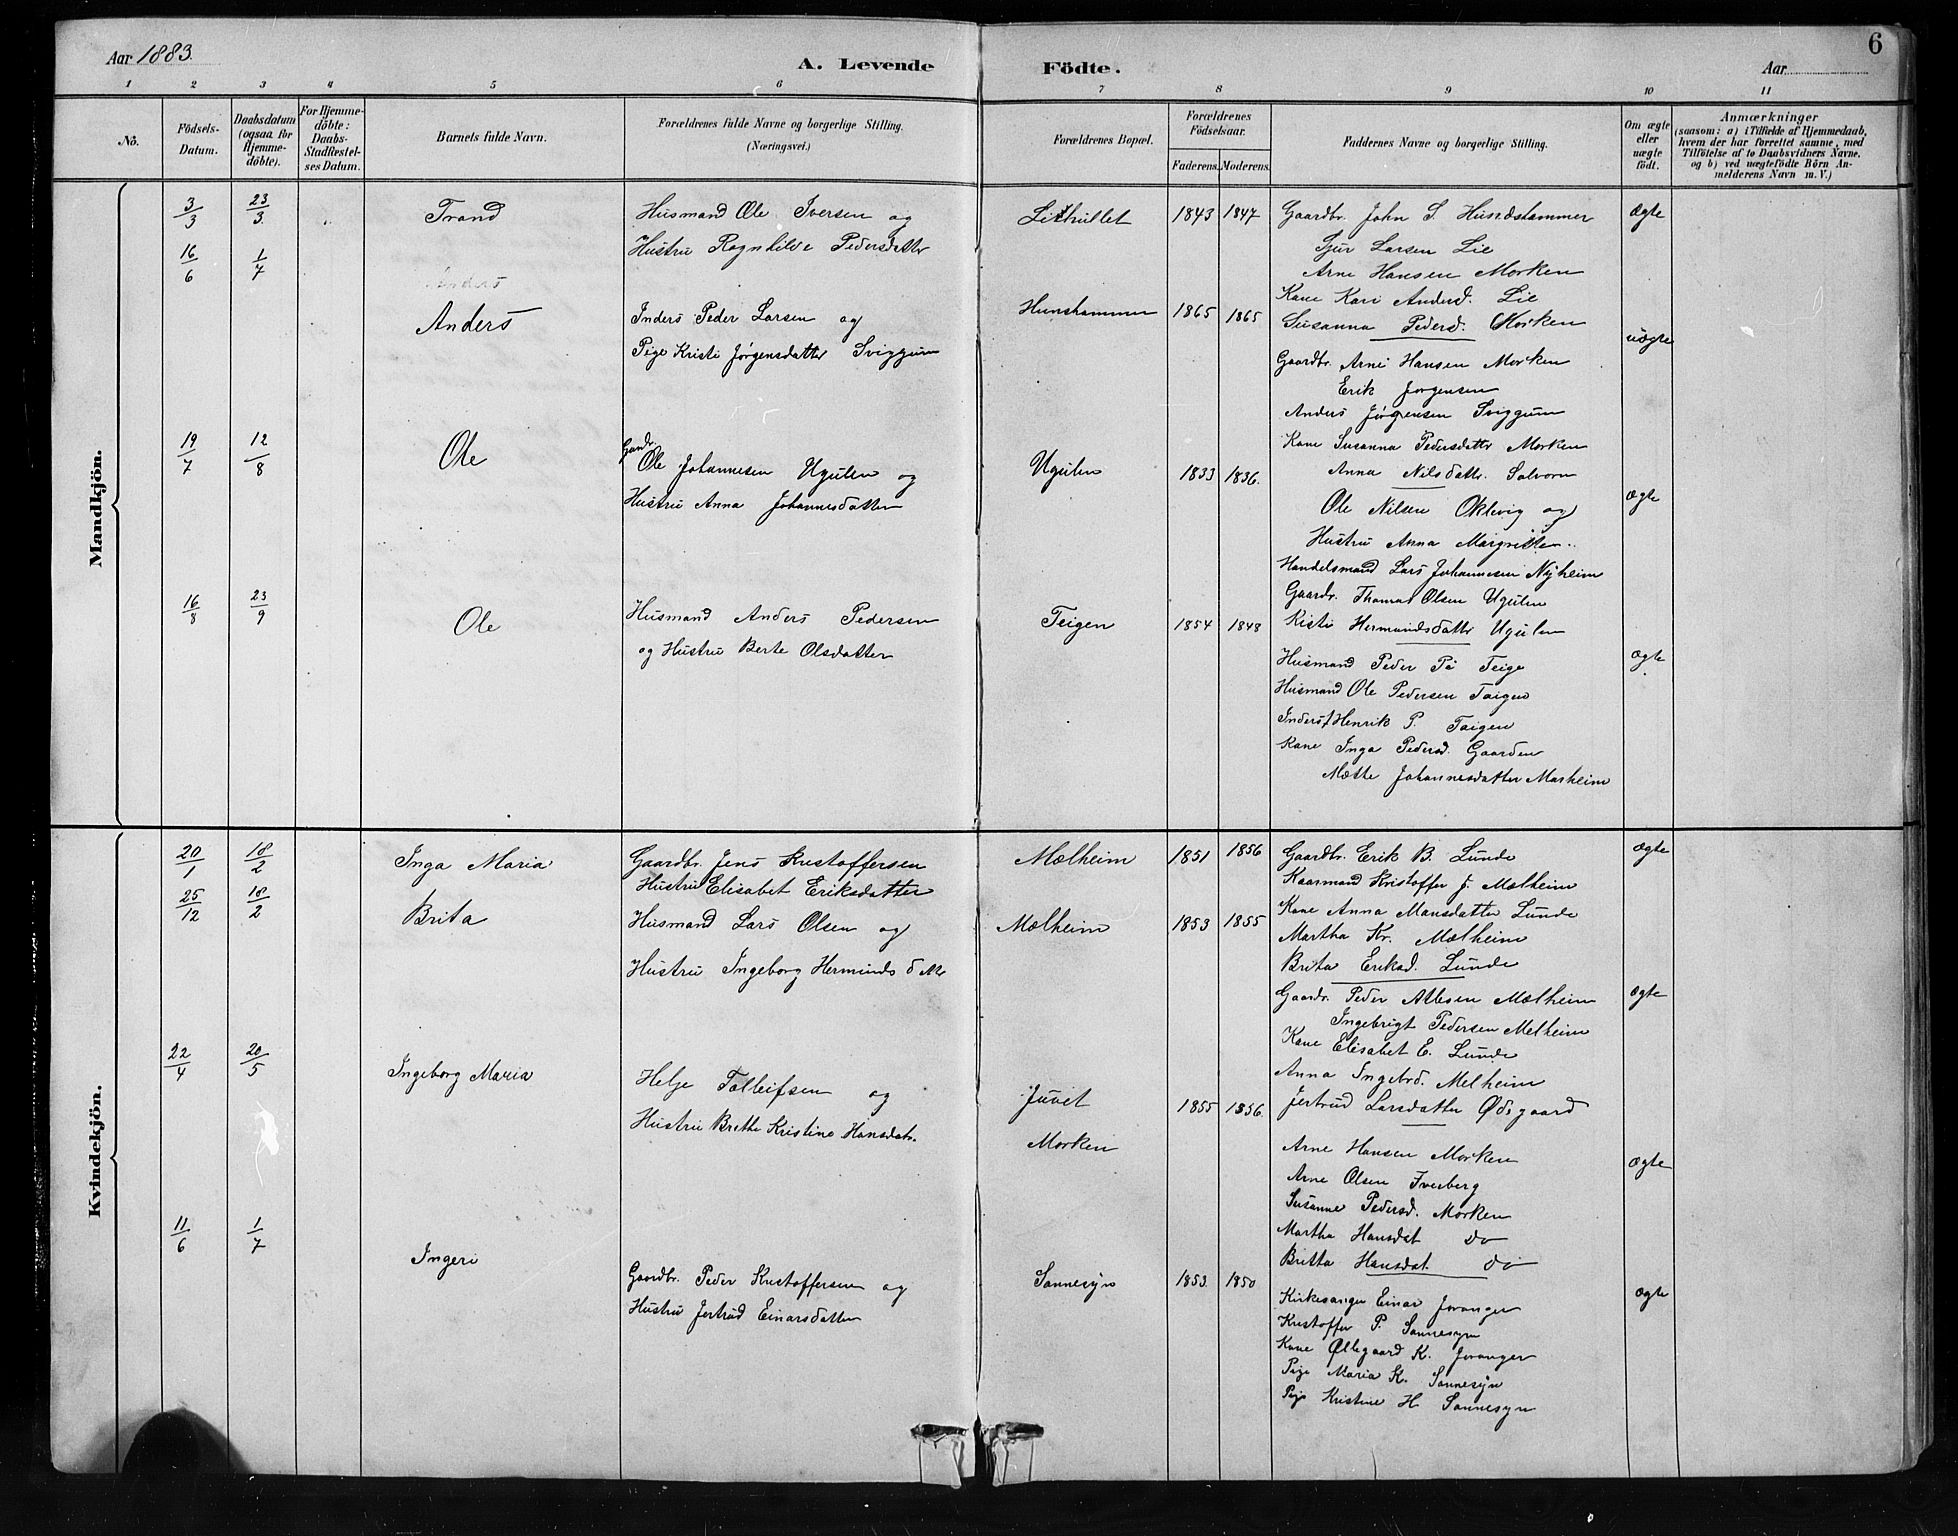 Aar 1883.
A. Levende
Födte.
Aar
6
1 2 3 4 5 6 7 8 9 10 11
No.
Födsels-Datum.
Daabsdatum (ogsaa for Hjemme-döbte).
For Hjemme-döbte: Daabs-Stadfæstel-ses Datum.
Barnets fulde Navn.
Forældrenes fulde Navne og borgerlige Stilling. (Næringsvei.)
Forældrenes Bopæl.
Forældrenes Födselsaar.
Faderens. Moderens.
Faddernes Navne og borgerlige Stilling.
Om ægte eller uægte födt.
Anmærkninger
(saasom: a) i Tilfælde af Hjemmedaab, hvem der har forrettet samme, med Tilföielse af to Daabsvidners Navne, og b) ved uægtefödte Börn An-melderens Navn m. V.)
Mandkjön.
3/3 23/3 Trand
Husmand Ole Iversen og
Hustru Ragnhilde Pedersdatter
1843 1847
Gaardbr. John S. Hundshammer
Sjur Larsen Lie
Arne Hansen Morken
Kone Kari Andersd. Lie
Susanna Pedersd. Morken
Ægte
16/6 1/7
Anders
Anders
Inders Peder Larsen og
Pige Kristi Jørgensdatter Sviggum
Hunshammer 1865 1865
uægte
Gaardbr. Arne Hansen Morken
Erik Jørgensen
Anders Jørgensen Sviggum
Kone Susanna Pedersdattr Morken
Anna Nilsdattr. Solvorn
19/7 12/8 Ole
Gaardr. Ole Johannesen Ugulen og
Hustru Anna Johannesdatter
Ugulen 1833 1836.
Ole Nilsen Oklevig og
Hustru Anna Margritte..
Handelsmand Lars Johannesen Nyheim
Gaardr. Thomas Olsen Ugulen
Kisti Hermundsdattr Ugulen
Ægte
16/8 23/9 Ole
Husmand Anders Pedersen
og Hustru Berte Olsdatter
Teigen 1854 1848
Husmand Peder På Teige
Husmand Ole Pedersen Taigen
Inderst Henrik P. Taigen
Kone Inga Pedersd. Gaarden
Mætte Johannesdatter Marheim
Ægte
Kvindekjön.
20/1 18/2 Inga Maria
Gaardbr. Jens Kristoffersen
Hustru Elisabet Eriksdatter
Mælheim 1851 1856
Gaardbr. Erik B. Lunde
Kaarmand Kristoffer J. Mælheim
Kone Anna Mansdatter Lunde
Martha Kr. Mælheim
Brita Eriksd. Lunde
Ægte
25/12 18/2 Brita
Husmand Lars Olsen og
Hustru Ingeborg Hermundsdattr
Mælheim 1853 1855
Gaardr. Peder Atlesen Mælheim
Ingebrigt Pedersen Melheim
Kone Elisabet E. Lunde
Anna Ingebrd. Melheim
Jertrud Larsdatter Ødegaard
Ægte
22/4 20/5 Ingeborg Maria
Helje Tolleifsen og
Hustru Brithe Kristine Hansdatr.
Juvet
Morken
1855 1856.
Arne Hansen Morken
Arne Olsen Iverberg
Susanne Pedersd. Morken
Martha Hansdat Do
Britta Hansdat. Do
Ægte
11/6 1/7 Ingeri
Gaardbr. Peder Kristoffersen og
Hustru Jertrud Einarsdatter
Sonnesyn 1853 1850
Kirkesanger Einar Joranger
Kristoffer P. Sonnesyn
Kone Øllegaard K. Joranger
Pige Maria K. Sonnesyn
Pige Kristine H. Sonnesyn
Ægte